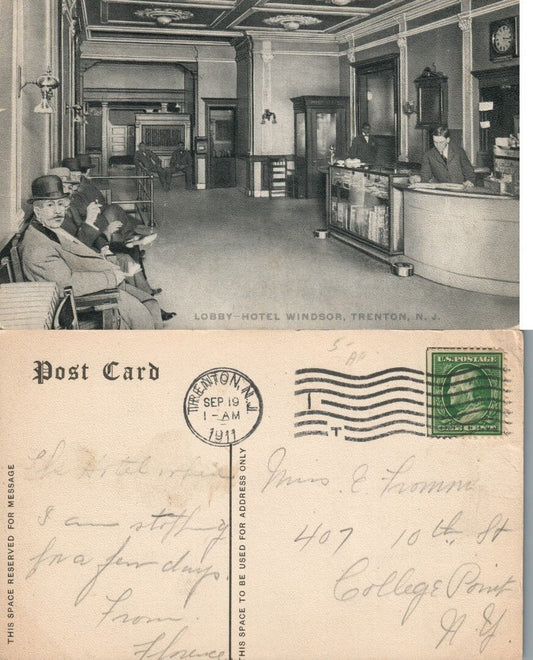 LOBBY-HOTEL WINDSOR, TRENTON, N. J.
Post Card
TRENTON, N.J.
SEP 19
1-AM
1911
1
T
U.S. POSTAGE
THIS SPACE RESERVED FOR MESSAGE
The Hotel
I am stopping
for a few days.
From
Florence
THIS SPACE TO BE USED FOR ADDRESS ONLY
Miss. E Fromm
407 10th St
College Point
N. Y.